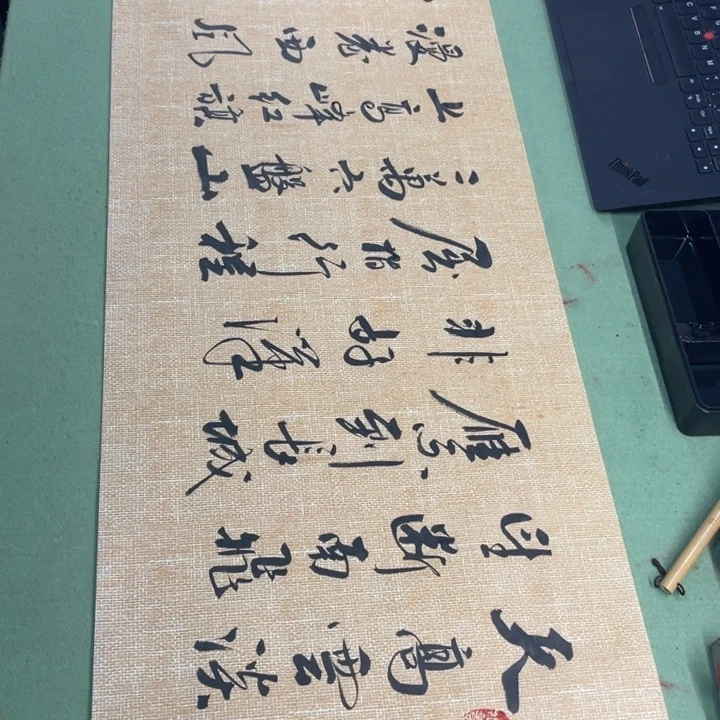 天高雲淡
望断南飛
雁不到長城
非好漢
屈指行程
二萬六盤山
上高峰紅旗
漫卷西風
ThinkPad